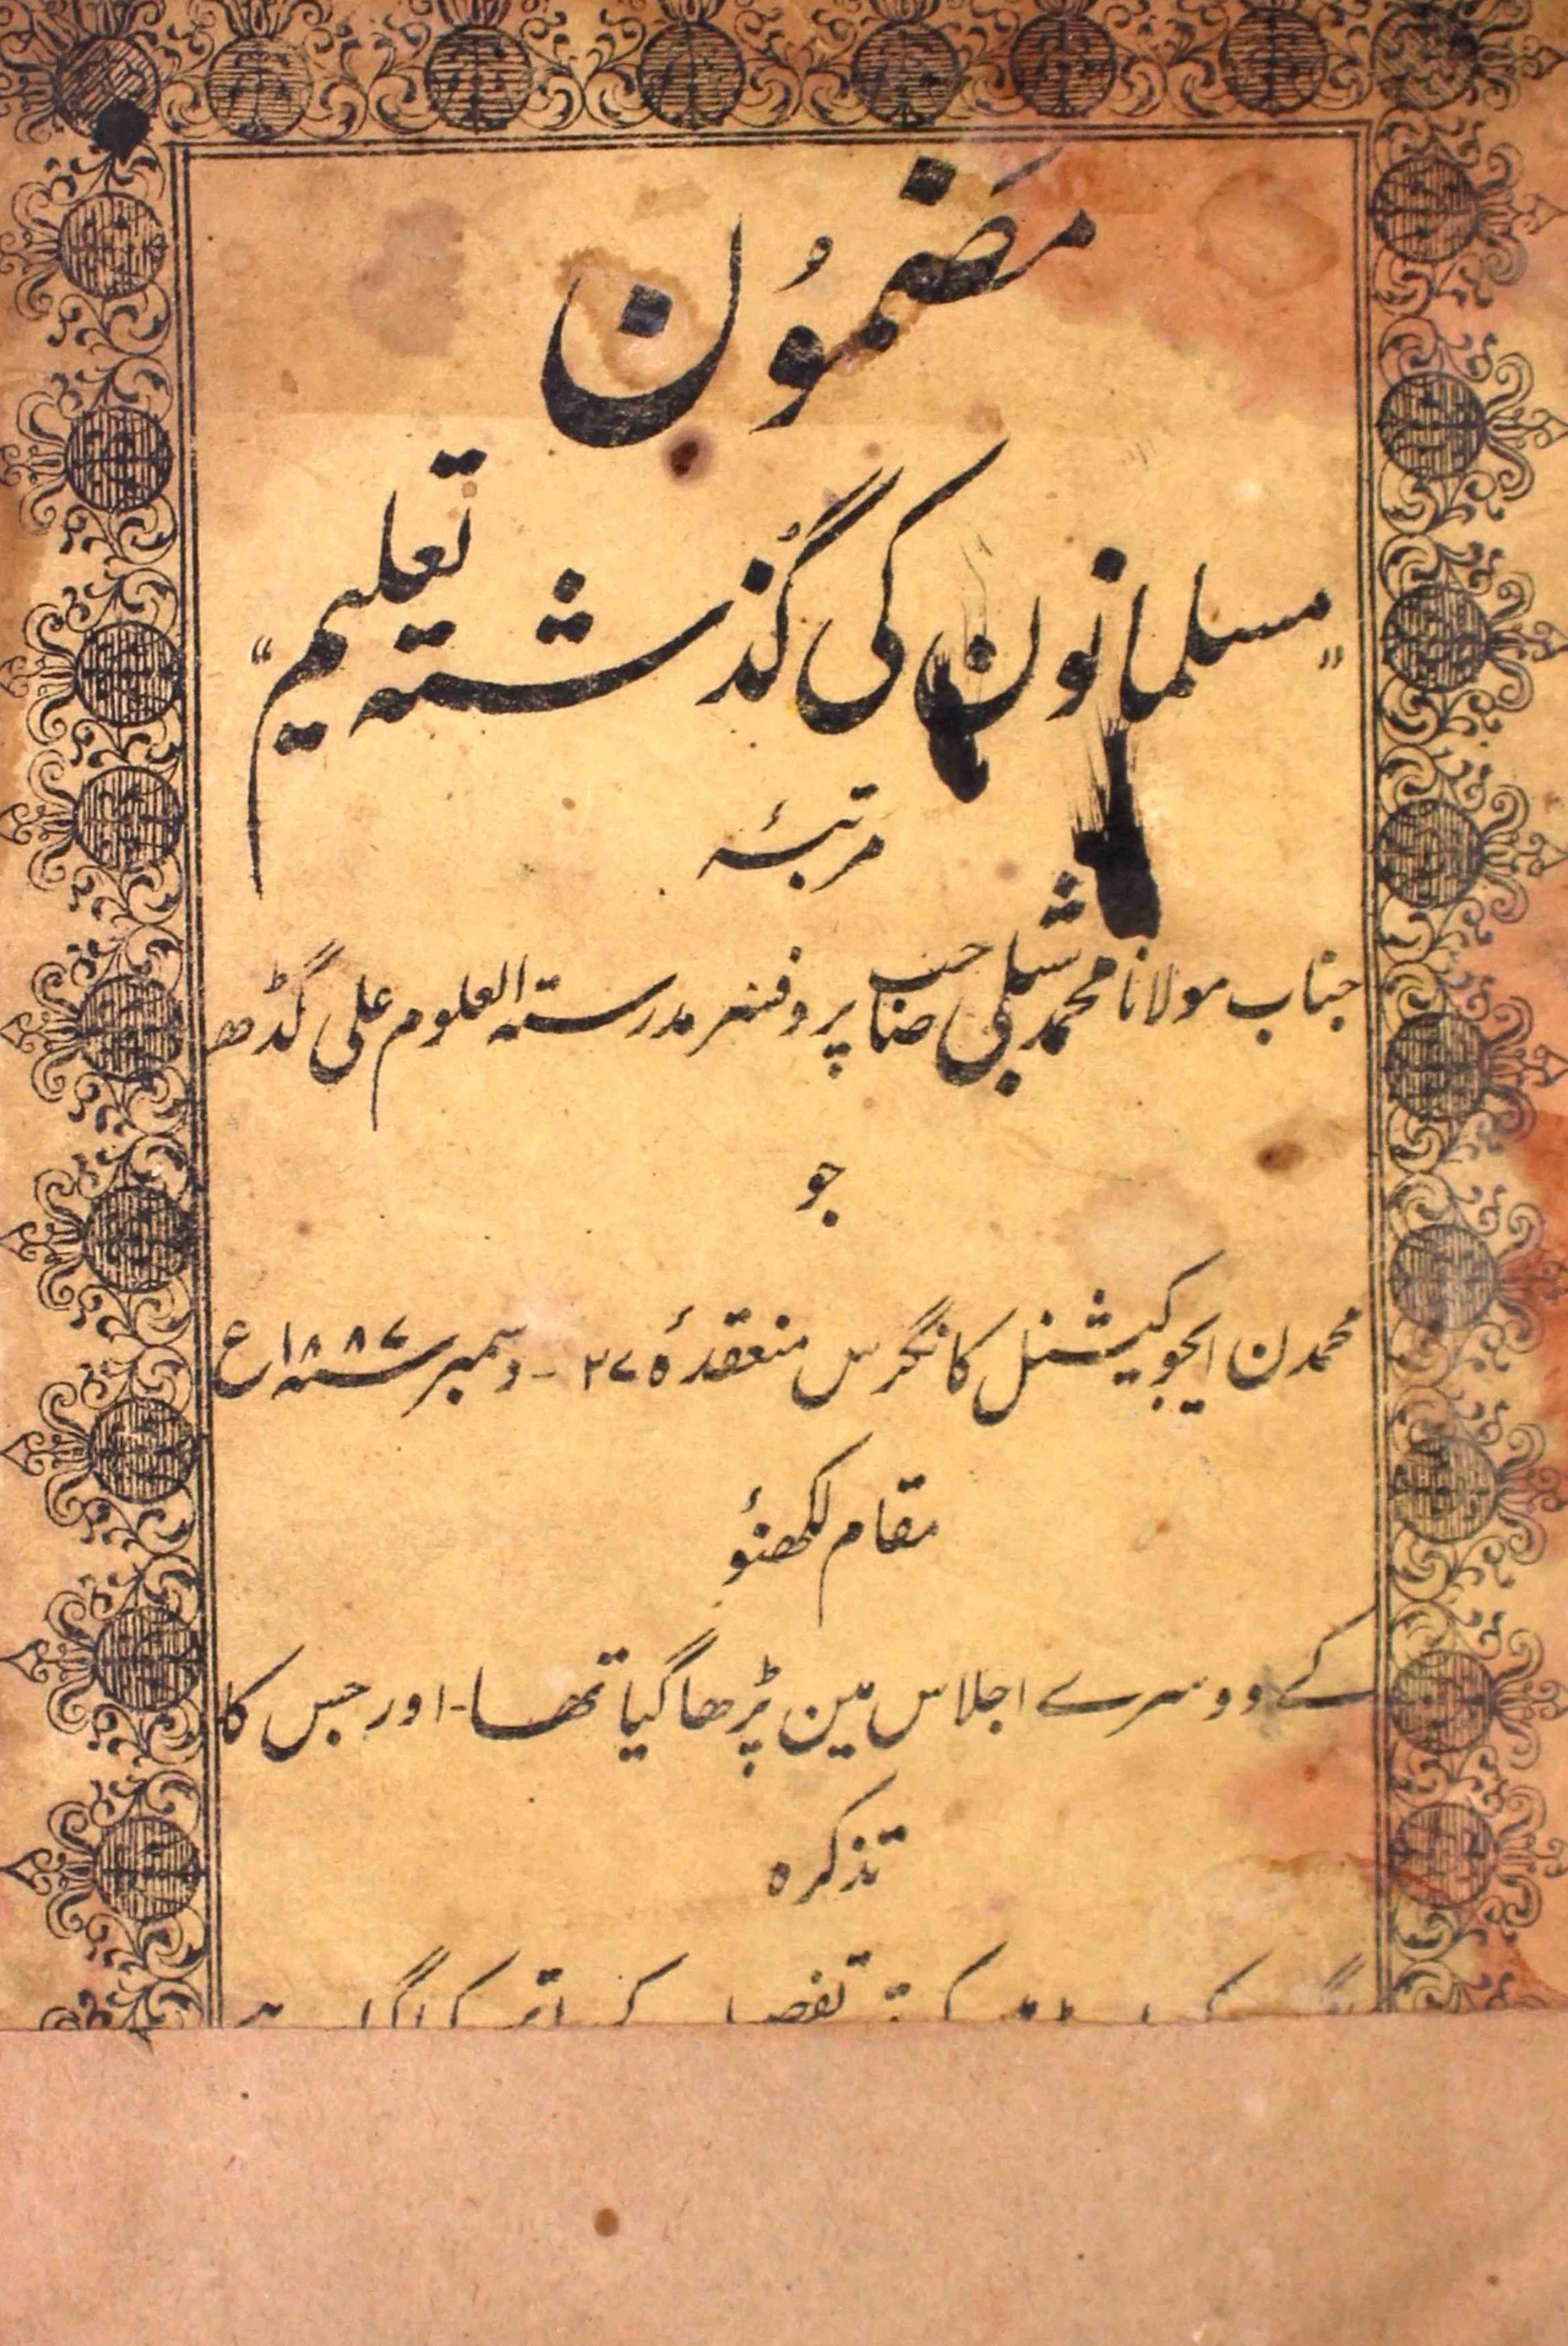 مضمُون
"مسلمانون کی گذشتہ تعلیم"
مرتبۂ
جناب مولانا محمد شبلی صاحب پروفیسر مدرستہ العلوم علی گڈھ
جو
محمدن ایجوکیشنل کانگرس منعقدۂ ۲۷ - دسمبر سنہ ۱۸۸۷ع
مقام لکھنؤ
کے دوسرے اجلاس مین پڑھا گیا تھا - اور جس کا
تذکرہ